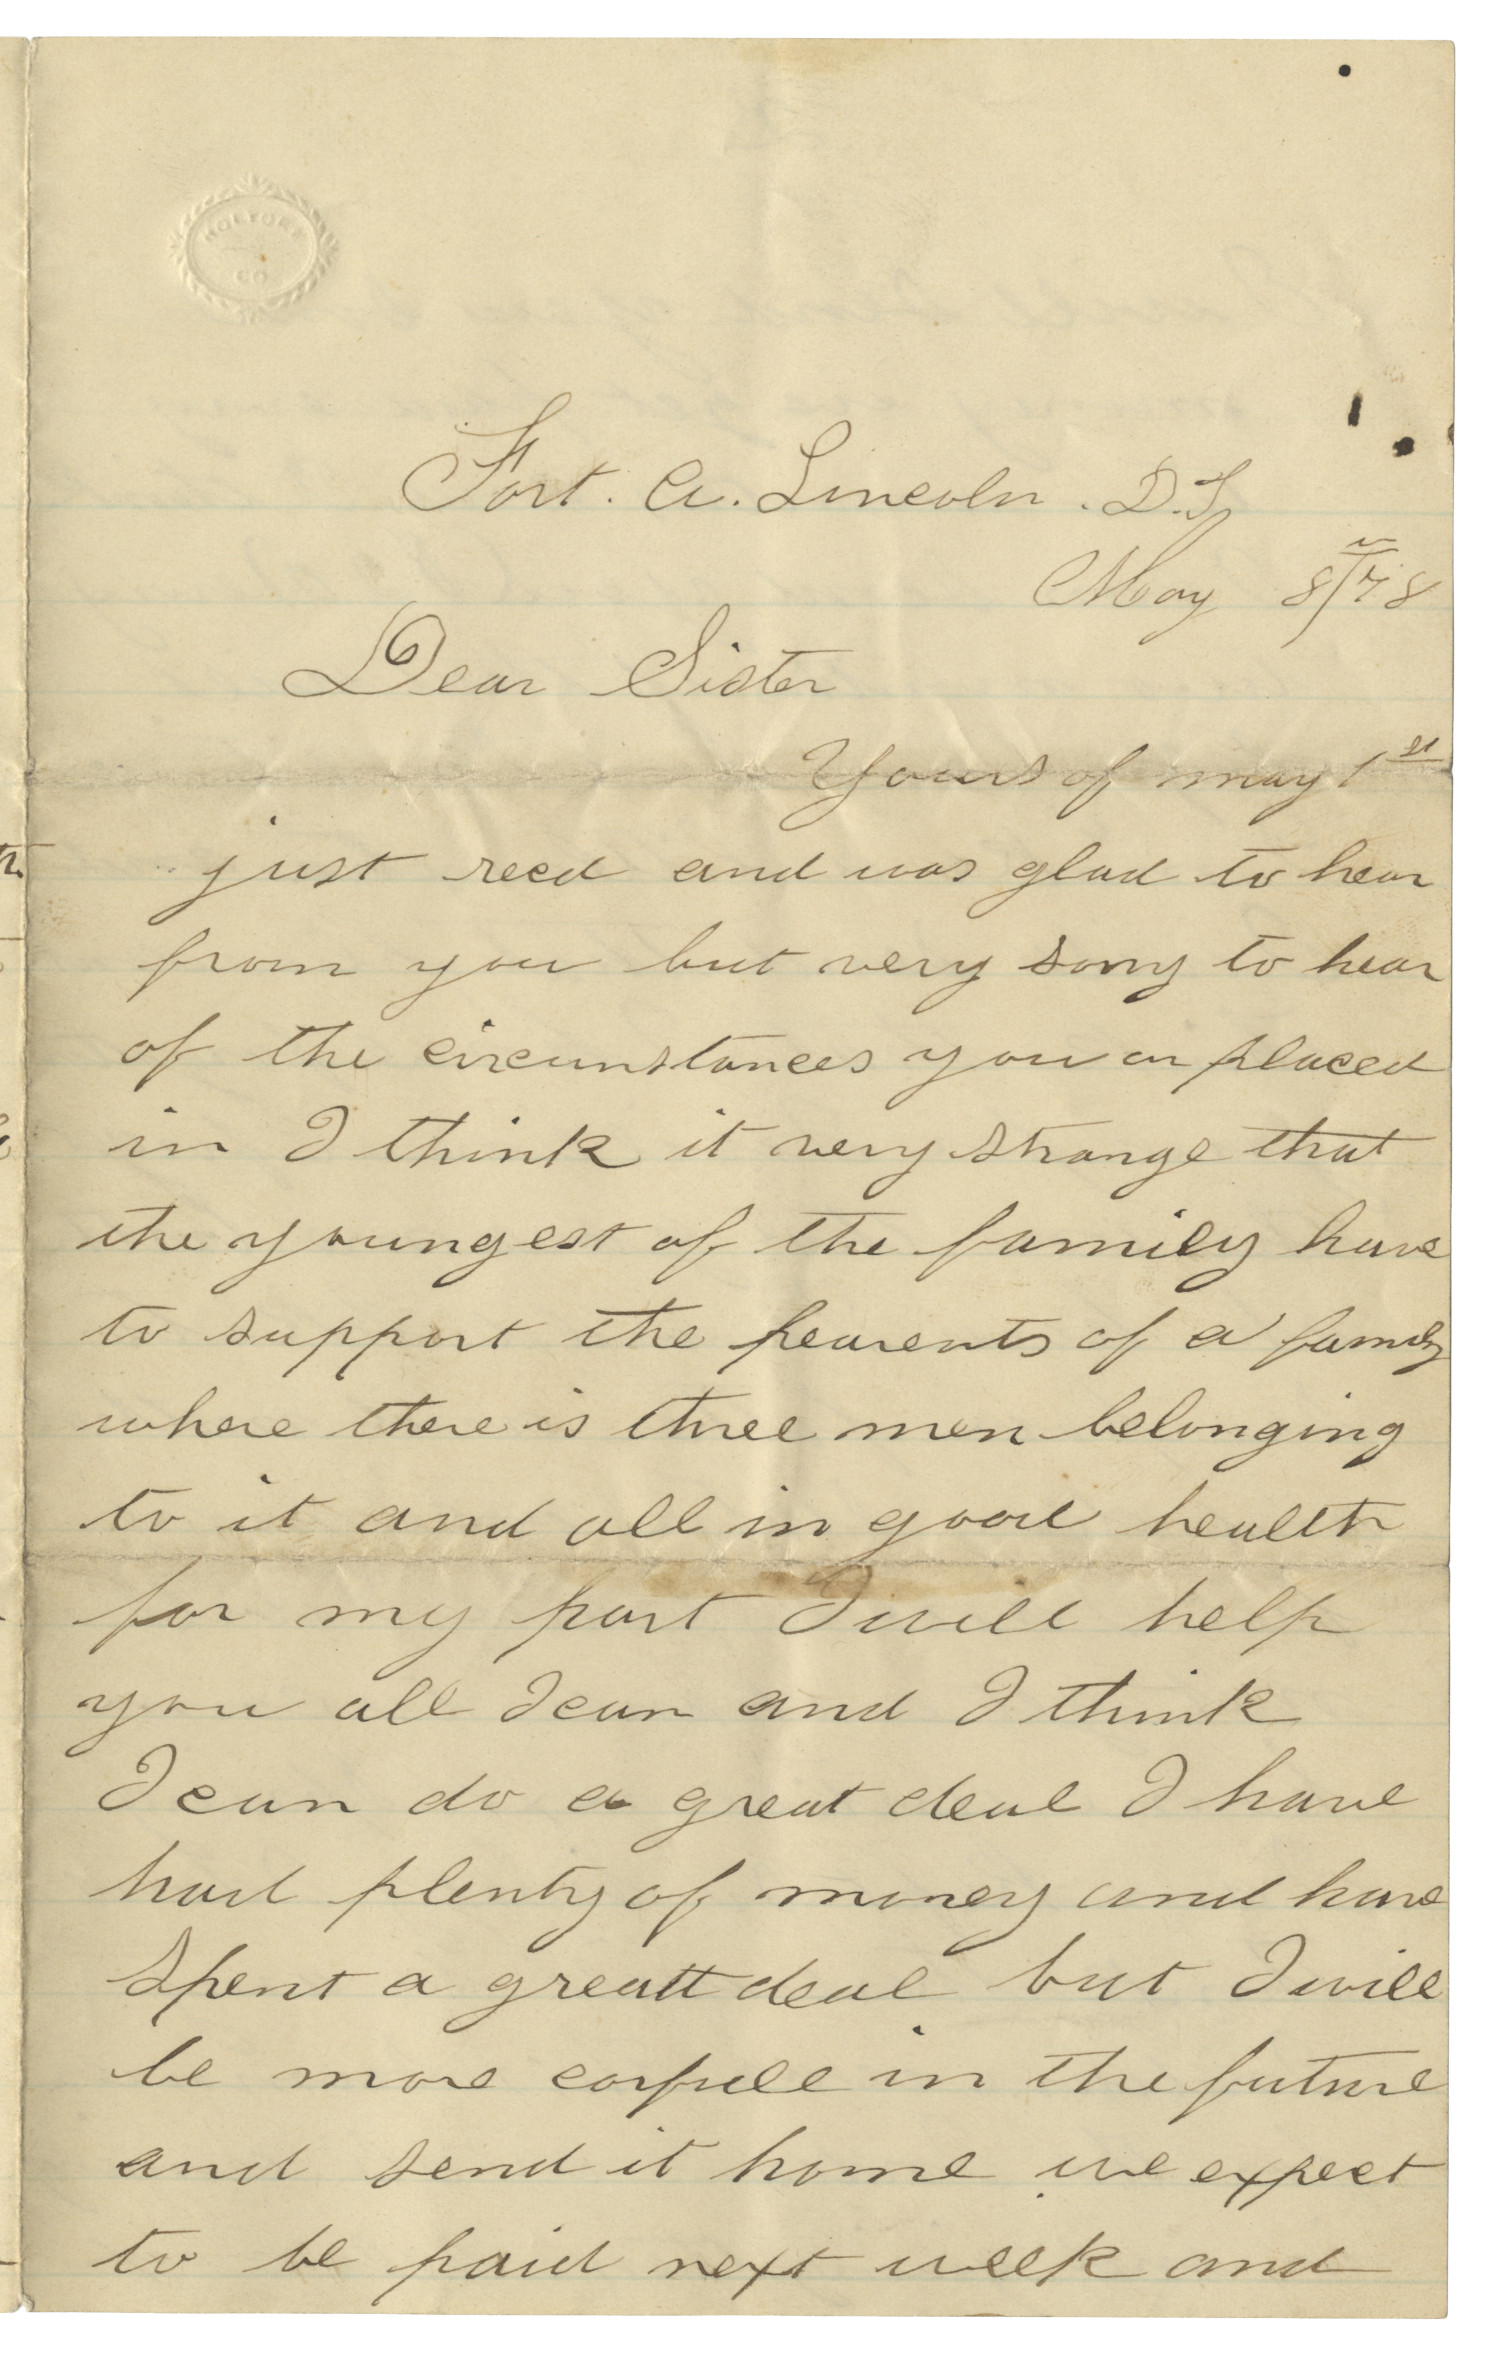 HOLYOKE
CO
Fort. A. Lincoln. D.T.
May 8/78
Dear Sister
Yours of may 1st
just recd and was glad to hear
from you but very sorry to hear
of the circunstances you ar placed
in I think it very strange that
the youngest of the family have
to support the pearents of a family
where there is three men belonging
to it and all in good health
for my part I will help
you all I can and I think
I can do a great deal I have
had plenty of money and have
spent a greatt deal but I will
be more carfull in the future
and send it home we expect
to be paid next week and